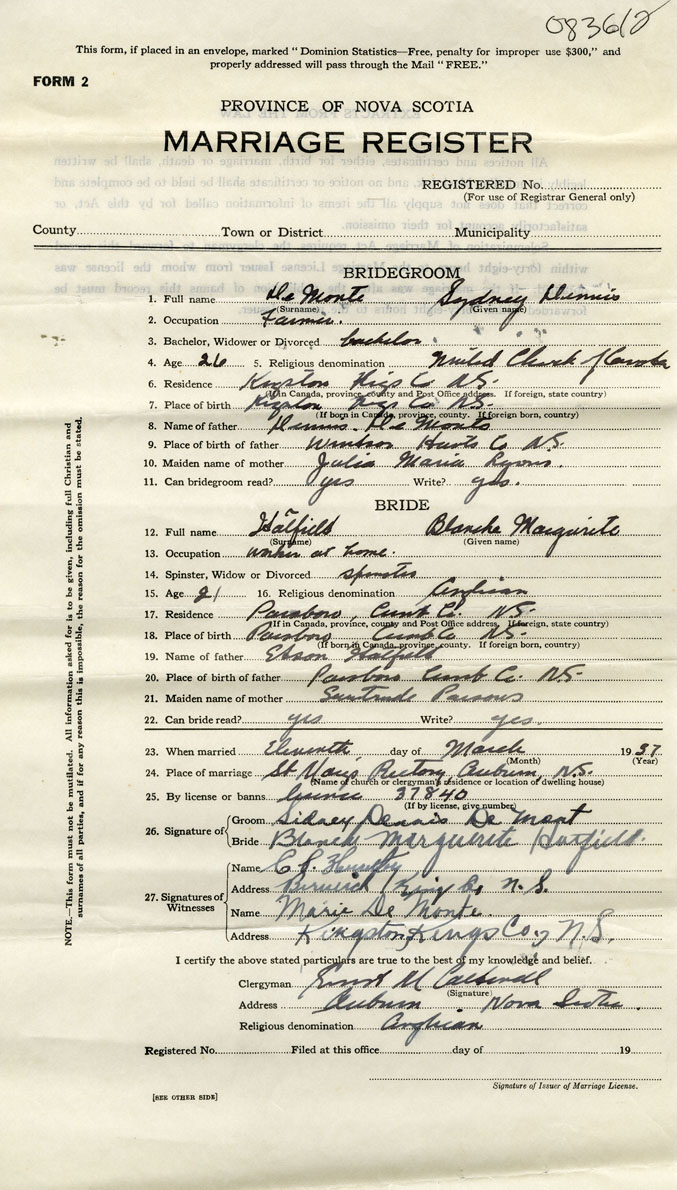 083612
This form, if placed in an envelope, marked "Dominion Statistics—Free, penalty for improper use $300," and
properly addressed will pass through the Mail "FREE."
FORM 2
PROVINCE OF NOVA SCOTIA
MARRIAGE REGISTER
REGISTERED No.
(For use of Registrar General only)
County Town or District Municipality
BRIDEGROOM
1. Full name De Monte Sydney Dennis
(Surname) (Given name)
2. Occupation Farmer.
3. Bachelor, Widower or Divorced bachelor.
4. Age 26 5. Religious denomination United Church of Canada
6. Residence Kingston Kings Co N.S.
(If in Canada, province, county and Post Office address. If foreign, state country)
7. Place of birth Kingston Kings Co N.S.
(If born in Canada, province, county. If foreign born, country)
8. Name of father Dennis De Monte
9. Place of birth of father Windsor Hants Co N.S.
10. Maiden name of mother Julia Maria Lyons.
11. Can bridegroom read? yes Write? yes.
BRIDE
12. Full name Hatfield Blanche Marguirite
(Surname) (Given name)
13. Occupation worker at home.
14. Spinster, Widow or Divorced spinster
15. Age 21 16. Religious denomination Anglican
17. Residence Parrsboro, Cumb Co. N.S.
(If in Canada, province, county and Post Office address. If foreign, state country)
18. Place of birth Parrsboro Cumb Co N.S.
(If born in Canada, province, county. If foreign born, country)
19. Name of father Hatfield
20. Place of birth of father Parrsboro Cumb Co. N.S.
21. Maiden name of mother Gertrude Parsons
22. Can bride read? yes Write? yes.
23. When married Eleventh day of March 1937
(Month) (Year)
24. Place of marriage St Mary's Rectory Auburn, N.S.
(Name of church or clergyman's residence or location of dwelling house)
25. By license or banns licence 37840
(If by license, give number)
26. Signature of Groom Sidney Dennis De Mont
Bride Blanch Marguerite Hatfield.
27. Signatures of Witnesses Name C.P.
Address Berwick Kings Co. N.S.
Name Marie De Monte.
Address Kingston, Kings Co., N.S.
I certify the above stated particulars are true to the best of my knowledge and belief.
Clergyman Ernest M Caldwell
(Signature)
Address Auburn Nova Scotia.
Religious denomination Anglican
Registered No. Filed at this office day of 19
Signature of Issuer of Marriage License.
[SEE OTHER SIDE]
NOTE.—This form must not be mutilated. All information asked for is to be given, including full Christian and
surnames of all parties, and if for any reason this is impossible, the reason for the omission must be stated.